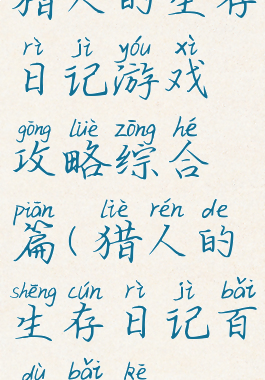 猎人的生存
rì jì yóu xì
日记游戏
gōng lüè zōng hé
攻略综合
piān liè rén de
篇(猎人的
shēng cún rì jì bǎi
生存日记百
dù bǎi kē